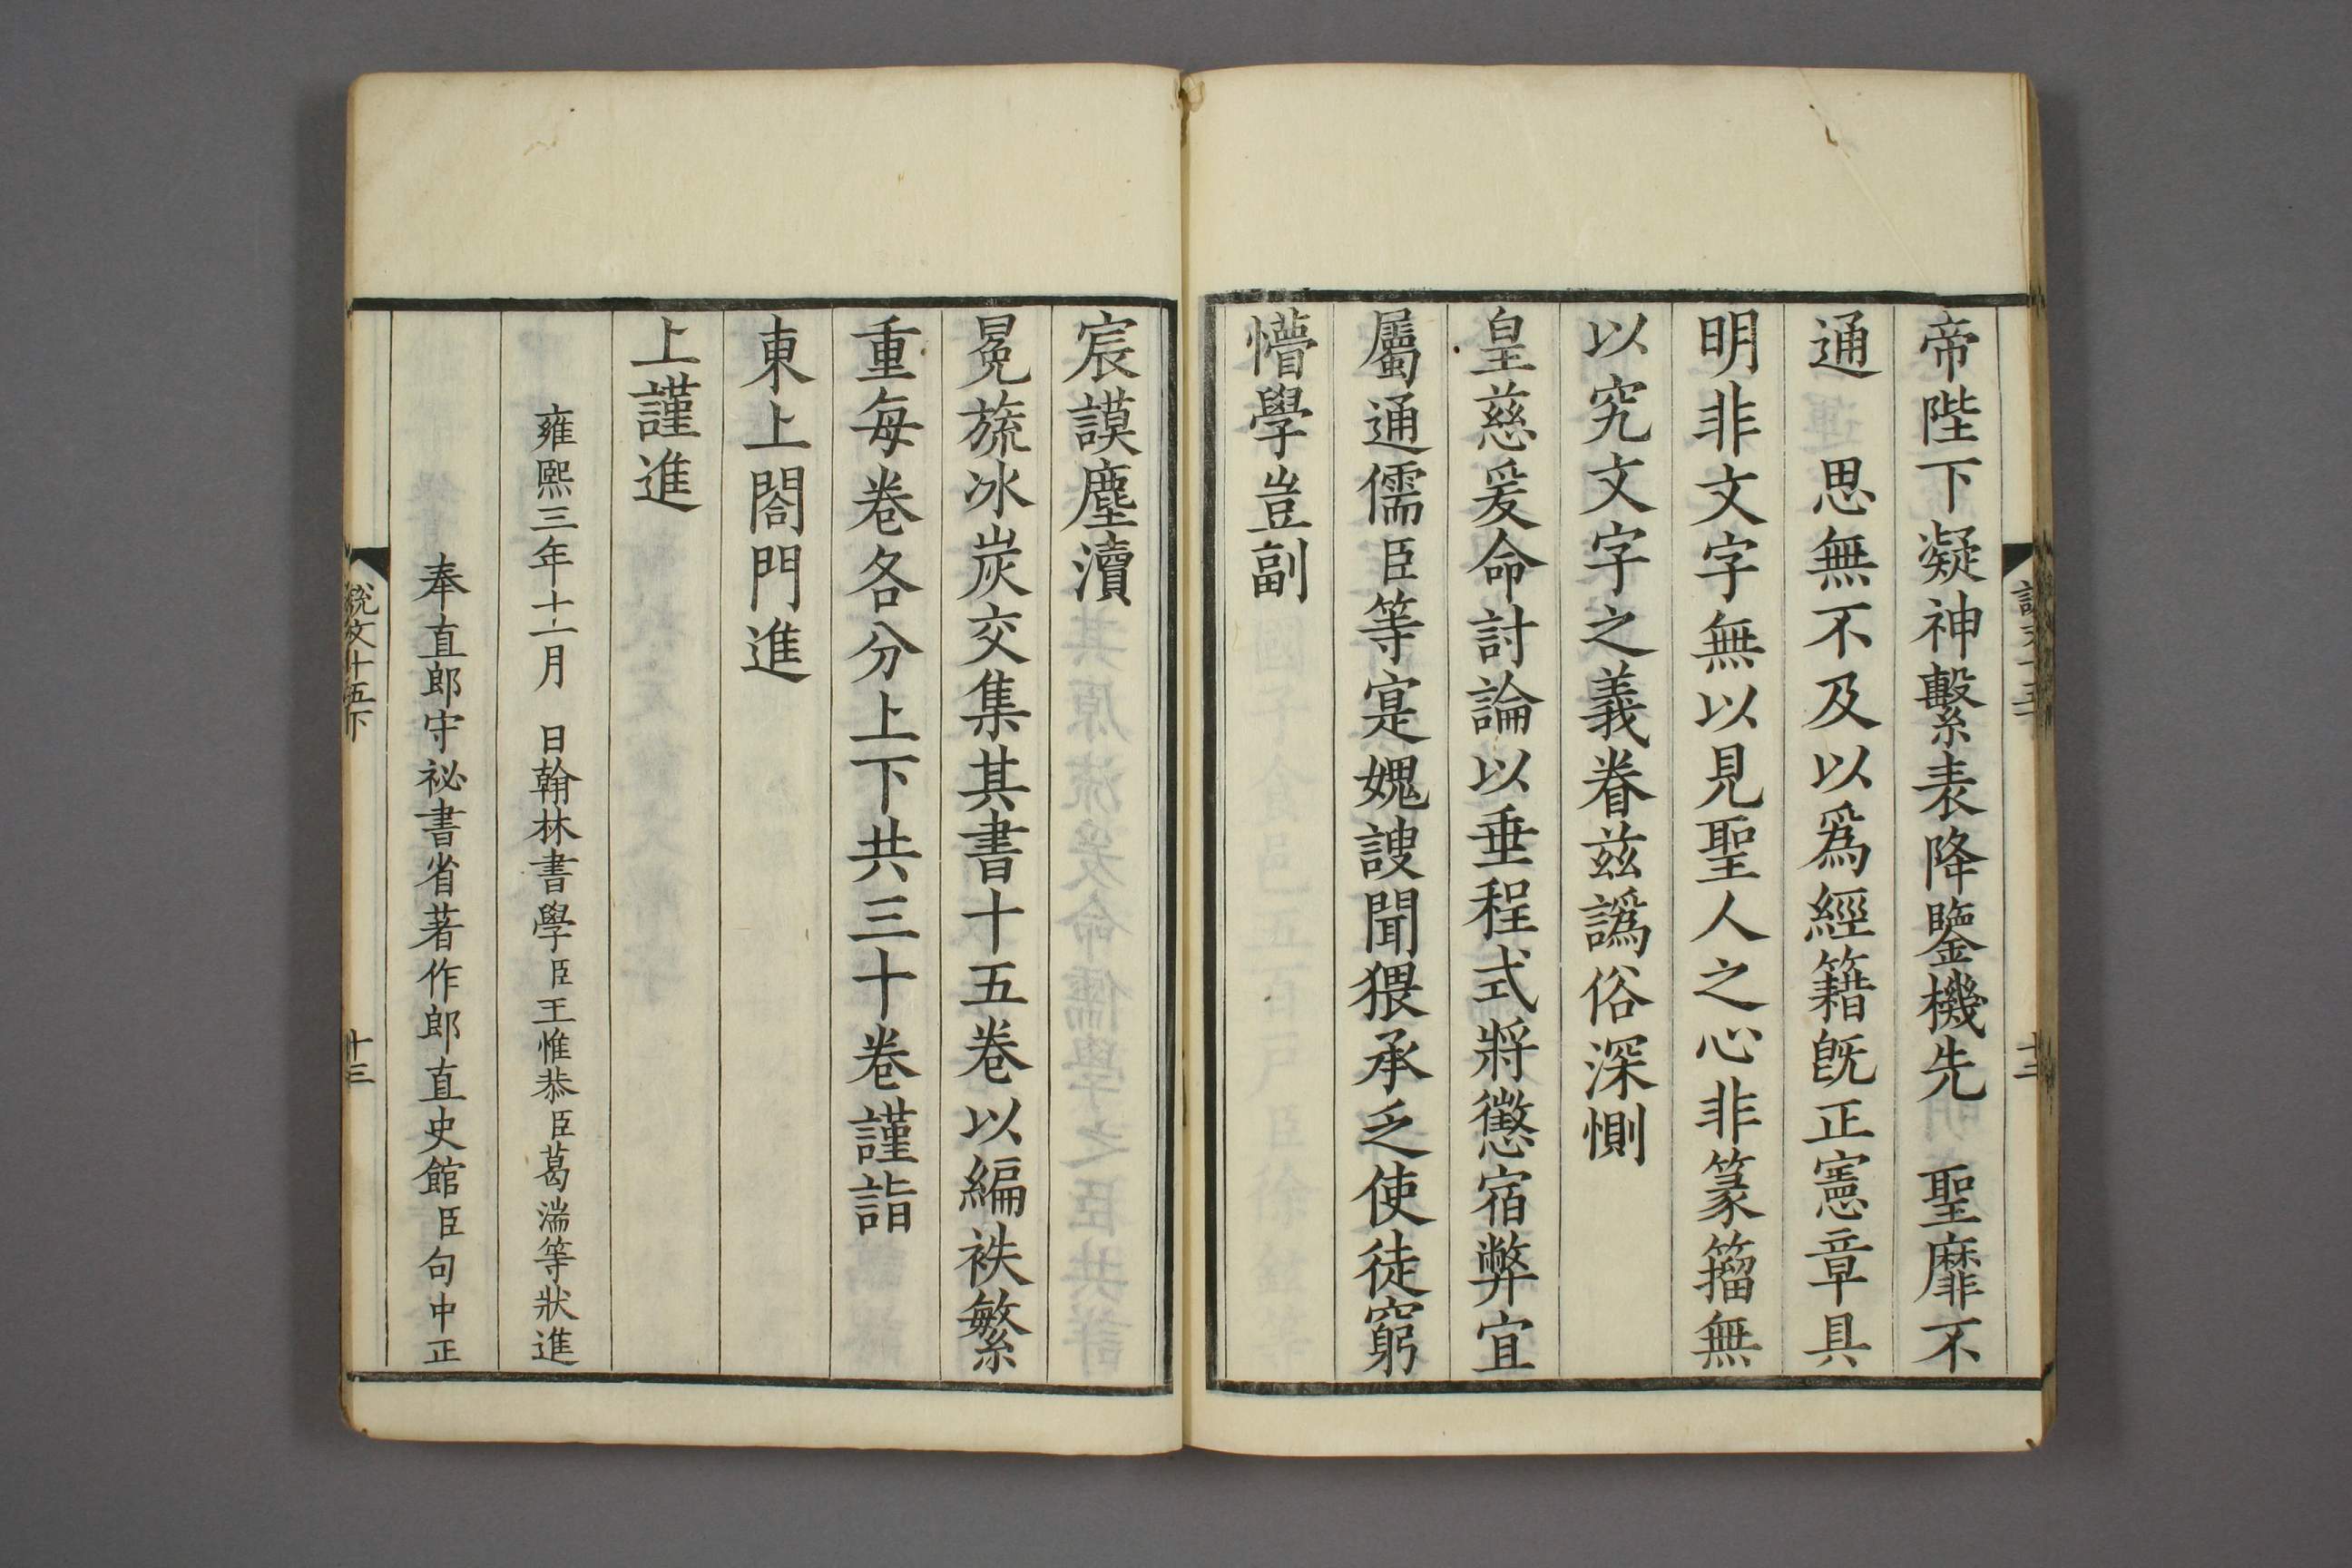 帝陛下凝神繫表降鑒機先　聖靡不
通　思無不及以爲經籍旣正憲章具
明非文字無以見聖人之心非篆籀無
以究文字之義眷兹譌俗深惻
皇慈爰命討論以垂程式將懲宿弊宜
屬通儒臣等寔媿謏聞猥承乏使徒窮
懵學豈副
宸謨塵瀆
冕旒冰炭交集其書十五卷以編袟繁
重每卷各分上下共三十卷謹詣
東上閤門進
上謹進
雍熙三年十一月　日翰林書學臣王惟恭臣葛湍等狀進
奉直郎守祕書省著作郎直史館臣句中正
說文十五下
十三